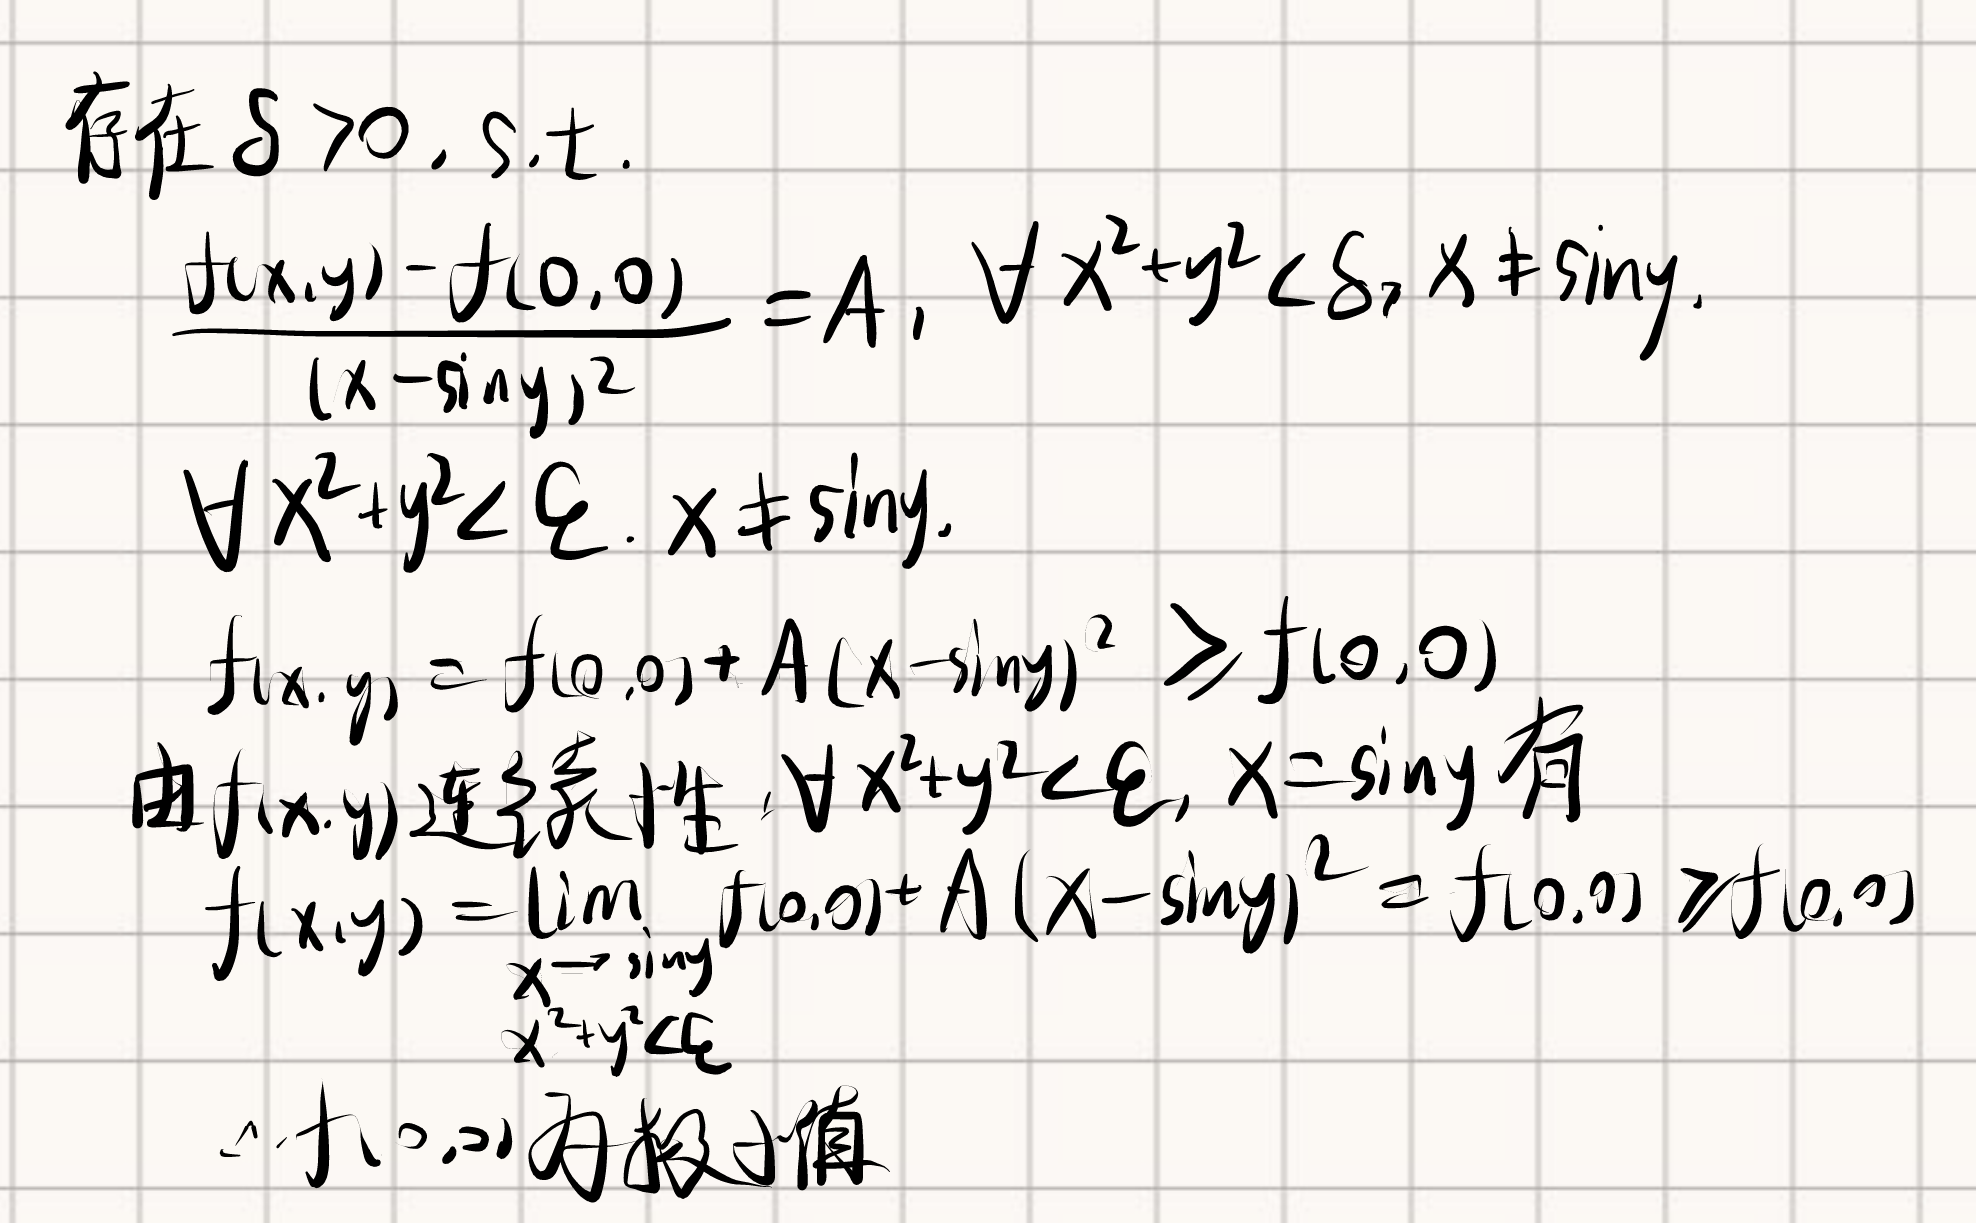 存在 δ>0, s.t.
(f(x,y)-f(0,0))/(x-siny)² = A, ∀ x²+y²<δ, x≠siny.
∀ x²+y²<ε. x≠siny.
f(x,y) = f(0,0)+A(x-siny)² ≥ f(0,0)
由f(x,y)连续性,∀x²+y²<ε, x=siny有
f(x,y) = lim f(0,0)+A(x-siny)² = f(0,0) ≥ f(0,0)
x→siny
x²+y²<ε
∴ f(0,0)为极小值